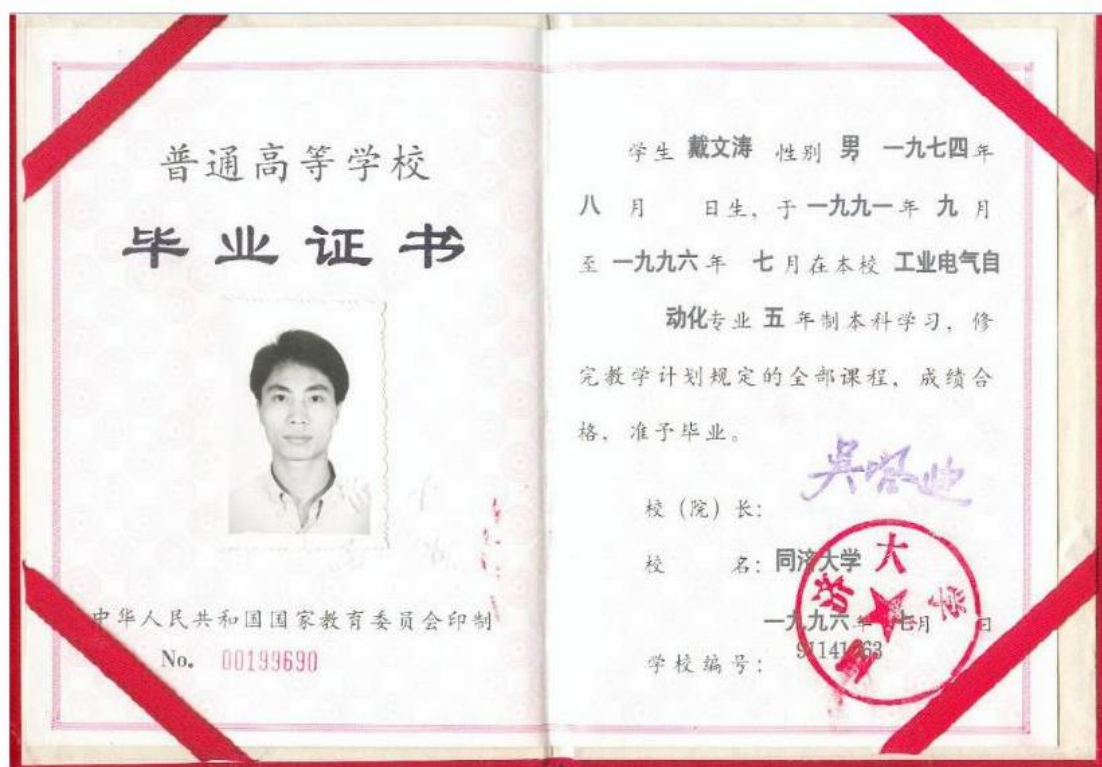 普通高等学校
毕业证书
中华人民共和国国家教育委员会印制
No. 00199690
学生 戴文涛 性别 男, 一九七四年
八 月 日生, 于 一九九一年 九 月
至 一九九六年 七 月在本校 工业电气自
动化专业 五 年制本科学习, 修
完教学计划规定的全部课程, 成绩合
格, 准予毕业。
吴启迪
校 (院) 长:
校 名: 同济大学
一九九六年 七月 日
学校编号:
同济大学